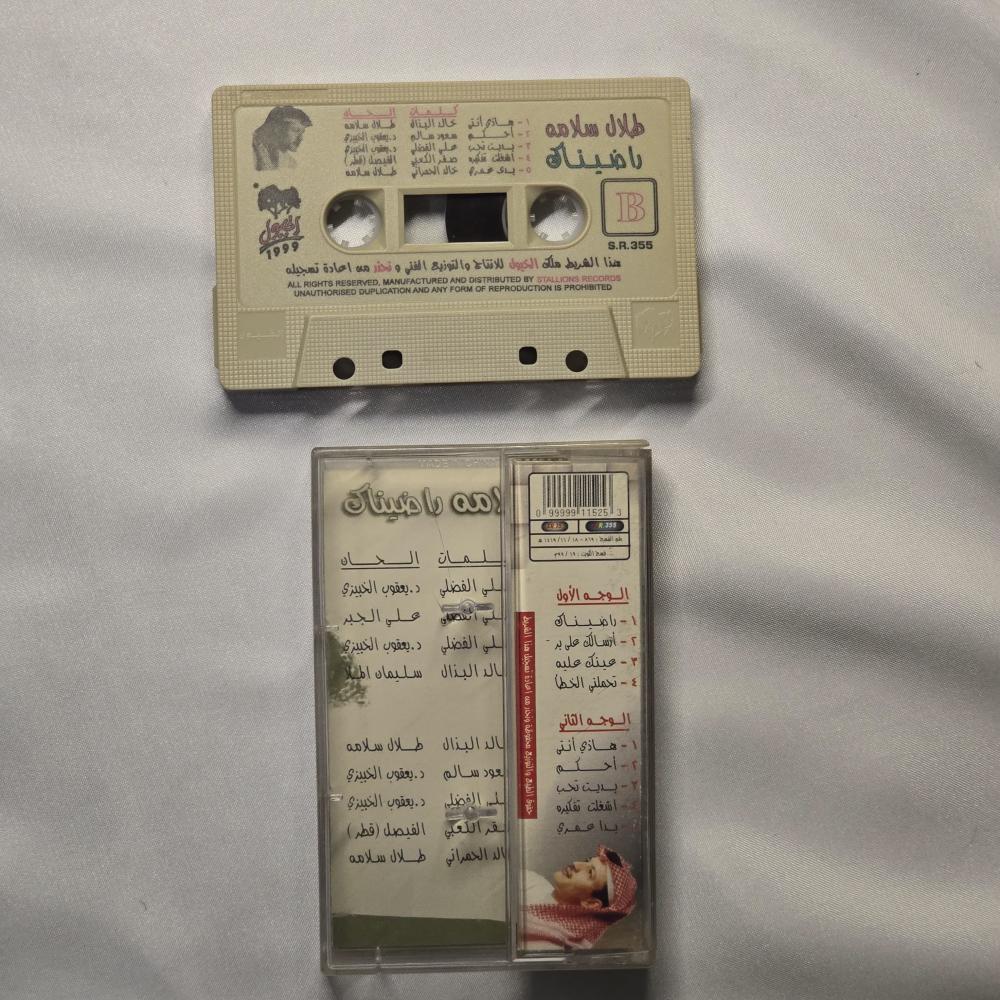 طلال سلامه
راضيناك
كلمات الحان
١ - هاذي أنتي خالد البذال طلال سلامه
٢ - أحكم سعود سالم د.يعقوب الخبيزي
٣ - بديت تحب علي الفضلي د.يعقوب الخبيزي
٤ - اشغلت تفكيره صقر الكعبي الفيصل (قطر)
٥ - بدى عمري خالد الحمراني طلال سلامه
B
S.R.355
الخيول
1999
هذا الشريط ملك الخيول للانتاج والتوزيع الفني و تحذر من اعادة تسجيله
ALL RIGHTS RESERVED, MANUFACTURED AND DISTRIBUTED BY STALLIONS RECORDS
UNAUTHORISED DUPLICATION AND ANY FORM OF REPRODUCTION IS PROHIBITED
لامه راضيناك
لمات الحان
لي الفضلي د.يعقوب الخبيزي
لي الفضلي علي الجبر
لي الفضلي د.يعقوب الخبيزي
الد البذال سليمان الملا
الد البذال طلال سلامه
عود سالم د.يعقوب الخبيزي
لي الفضلي د.يعقوب الخبيزي
قر الكعبي الفيصل (قطر)
الد الحمراني طلال سلامه
0 99999 11525 3
S.R.355
الوجه الأول
١ - راضيناك
٢ - أرسالك على بر
٣ - عينك عليه
٤ - تحملني الخطا
الوجه الثاني
١ - هاذي أنتي
٢ - أحكم
٣ - بديت تحب
٤ - اشغلت تفكيره
بدا عمري
حقوق الطبع والتوزيع محفوظة وتحذر من اعادة تسجيل هذا الشريط